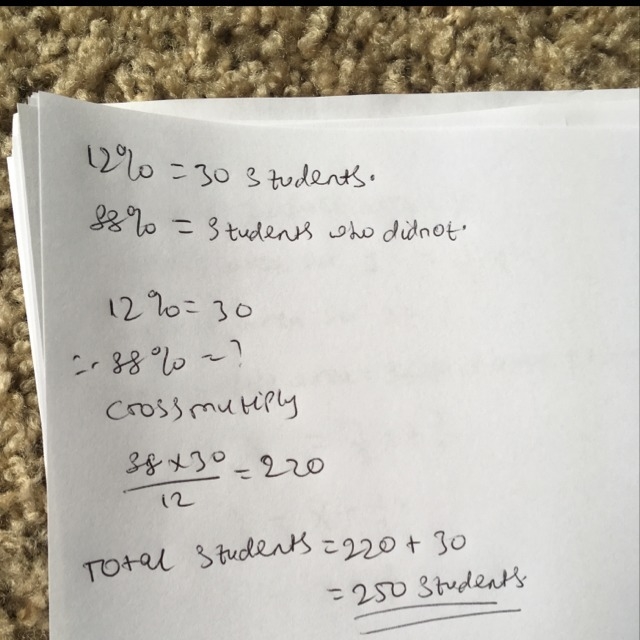 12% = 30 students.
88% = students who didnot.
12% = 30
∴ 88% = ?
crossmutiply
88 x 30
12
= 220
Total students = 220 + 30
= 250 students